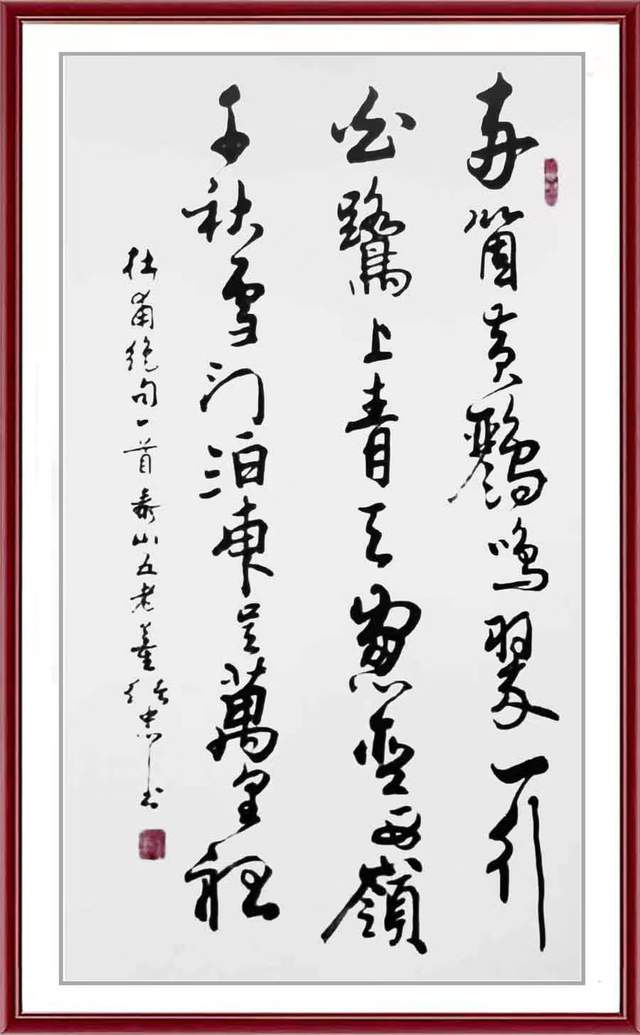 兩箇黃鸝鳴翠一行
白鷺上青天窗含西嶺
千秋雪门泊東吴萬里船
杜甫绝句一首泰山五老董忠书